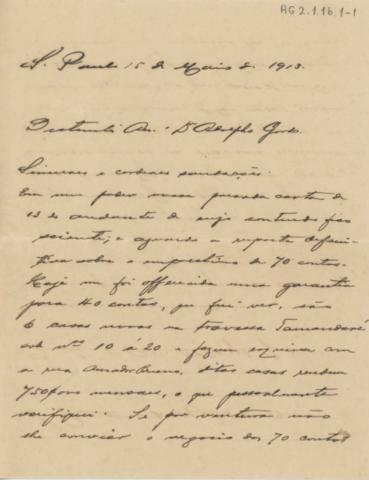 AG 2.1.16.1-1
S. Paulo 15 de Maio de 1913.
Distincto Am.º Dr Adolpho Gordo.
Sinceras e cordeaes saudações.
Em meu poder vossa presada carta de
13 do andante de cujo conteudo fico
sciente, e aguardo a resposta defini-
tiva sobre o emprestimo de 70 contos.
Hoje me foi offerecida uma garantia
para 40 contos, que fui ver, são
6 casas novas na travessa Tamandaré
sob nos 10 á 20 e fazem esquina com
a rua Amador Bueno, ditas casas rendem
750$000 mensaes, o que pessoalmente
verifiquei. Se por ventura não
lhe convier o negocio dos 70 contos